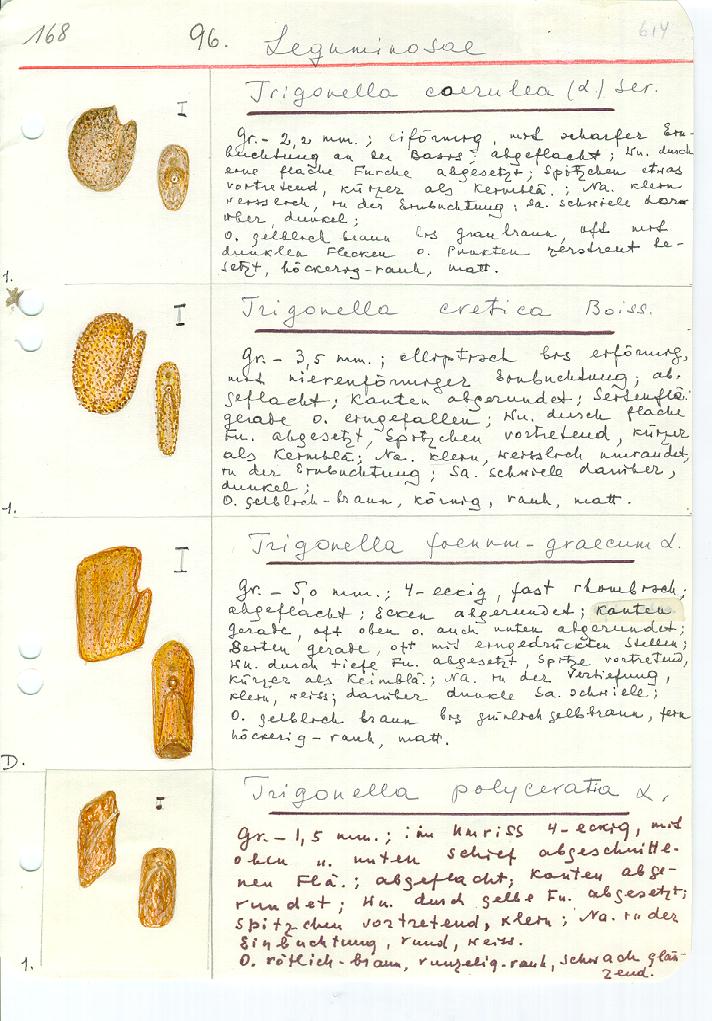 168
96. Leguminosae
614
Trigonella coerulea (L.) Ser.
Gr. - 2,2 mm.; eiförmig, mit scharfer Ein-
buchtung an der Basis; abgeflacht; Wu. durch
eine flache Furche abgesetzt; Spitzchen etwas
vortretend, kürzer als Keimblä.; Na. klein
weisslich, in der Einbuchtung; Sa. schwiele darü
ber, dunkel;
O. gelblich braun bis graubraun, oft mit
dunklen Flecken o. Punkten zerstreut be-
setzt, höckerig-rauh, matt.
1.
Trigonella cretica Boiss.
Gr. - 3,5 mm.; elliptisch bis eiförmig,
mit nierenförmiger Einbuchtung; ab-
geflacht; Kanten abgerundet; Seitenflä.
gerade o. eingefallen; Wu. durch flache
Fu. abgesetzt, Spitzchen vortretend, kürzer
als Keimblä; Na. klein, weisslich umrandet,
in der Einbuchtung; Sa. schwiele darüber,
dunkel;
O. gelblich-braun, körnig, rauh, matt.
1.
Trigonella foenum-graecum L.
Gr. - 5,0 mm.; 4-eckig, fast rhombisch;
abgeflacht; Ecken abgerundet; Kanten
gerade, oft oben o. auch unten abgerundet;
Seiten gerade, oft mit eingedrückten Stellen;
Wu. durch tiefe Fu. abgesetzt, Spitze vortretend,
kürzer als Keimblä.; Na. in der Vertiefung,
klein, weiss; darüber dunkle Sa. schwiele;
O. gelblich braun bis grünlich gelbbraun, fein
höckerig-rauh, matt.
D.
Trigonella polyceratia L.
Gr. - 1,5 mm.; im Umriss 4-eckig, mit
oben u. unten schief abgeschnitte-
nen Flä.; abgeflacht; Kanten abge-
rundet; Wu. durch gelbe Fu. abgesetzt;
Spitzchen vortretend, klein; Na. in der
Einbuchtung, rund, weiss.
O. rötlich-braun, runzelig-rauh, schwach glän-
zend.
1.